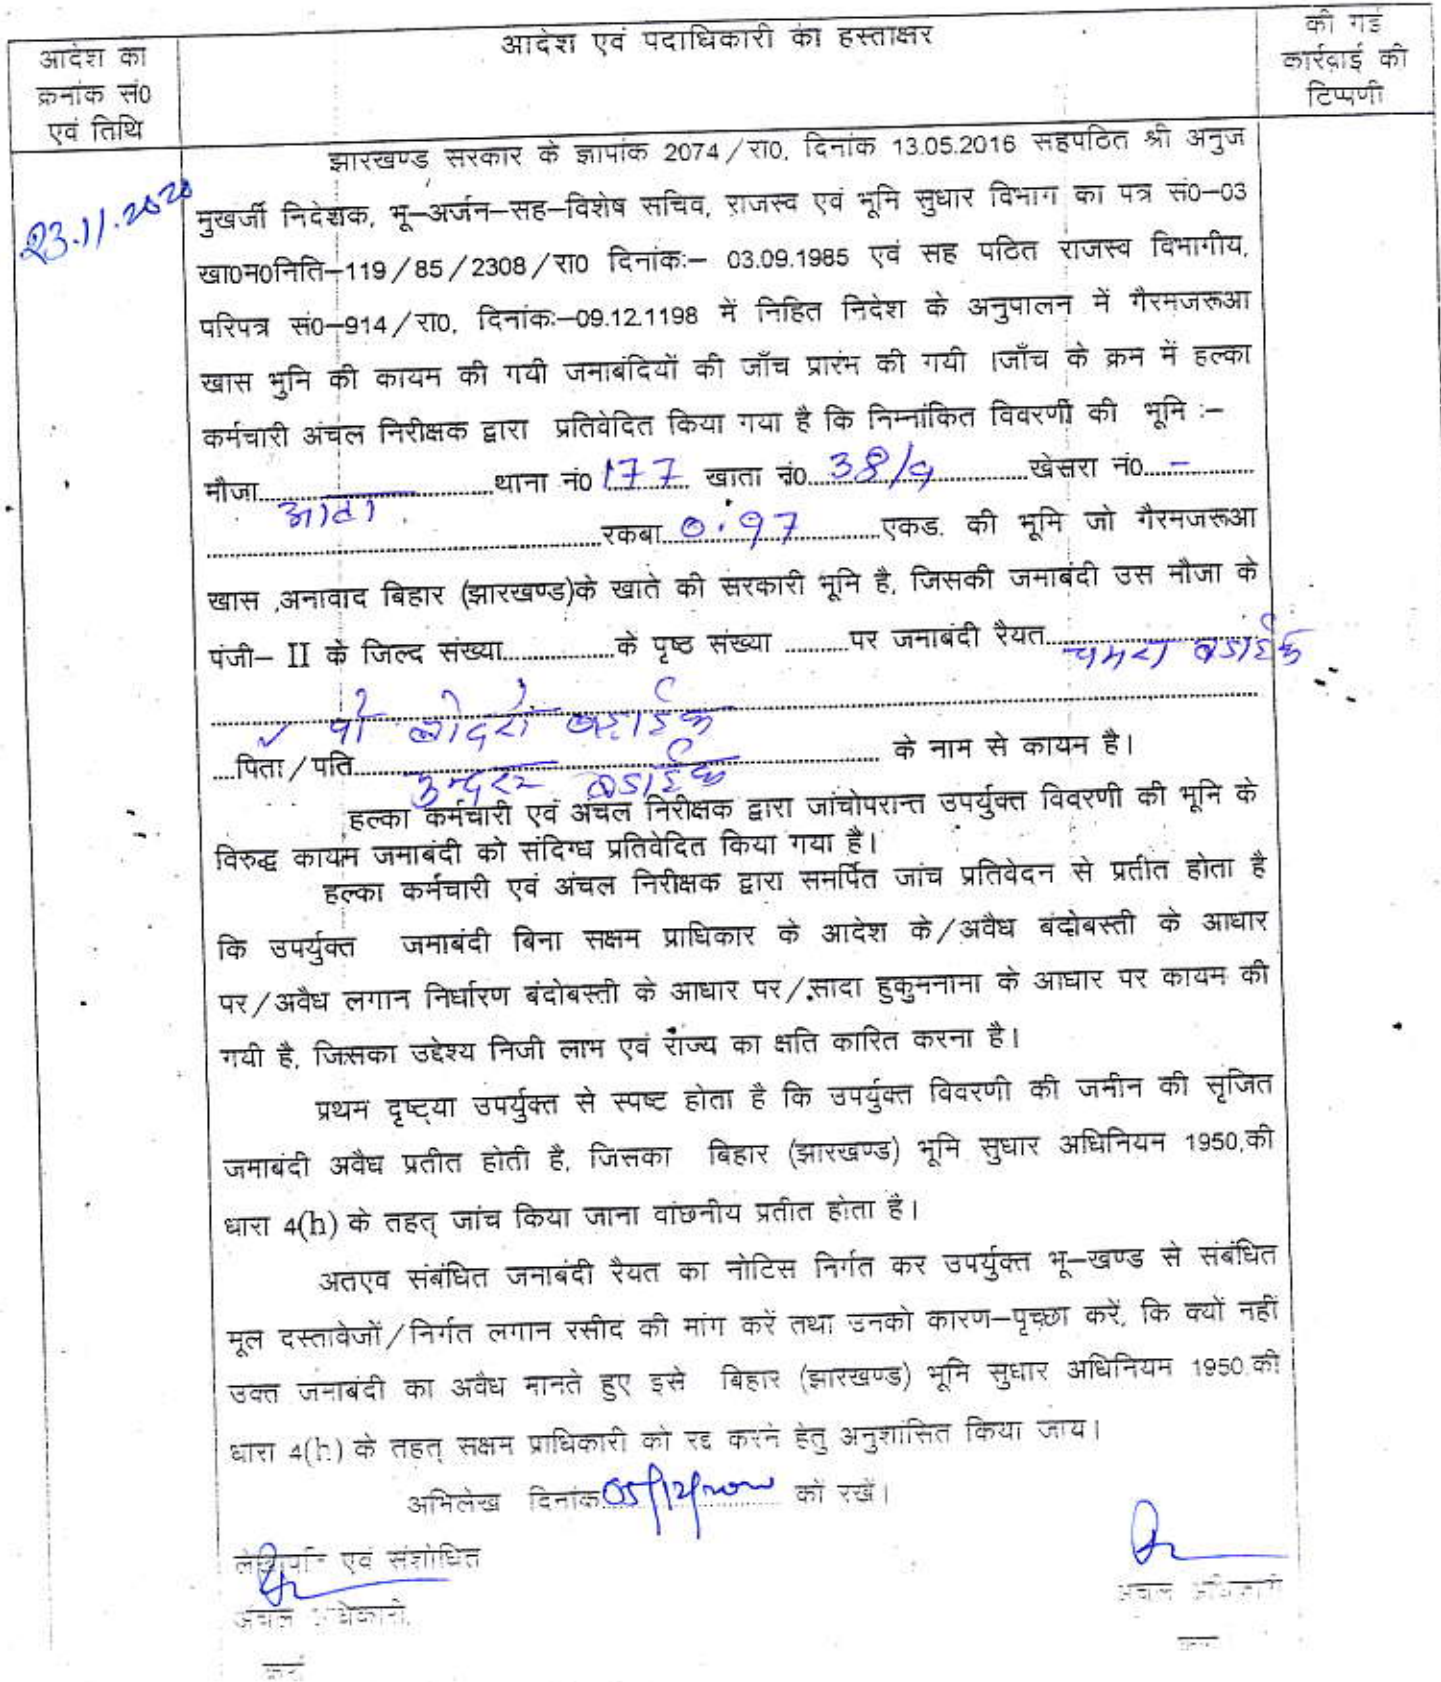 आदेश का
क्रमांक सं0
एवं तिथि
आदेश एवं पदाधिकारी का हस्ताक्षर
की गई
कार्रवाई की
टिप्पणी
23.11.2020
झारखण्ड सरकार के ज्ञापांक 2074/रा0, दिनांक 13.05.2016 सहपठित श्री अनुज
मुखर्जी निदेशक, भू–अर्जन–सह–विशेष सचिव, राजस्व एवं भूमि सुधार विभाग का पत्र सं0–03
खा0म0निति–119/85/2308/रा0 दिनांकः– 03.09.1985 एवं सह पठित राजस्व विभागीय,
परिपत्र सं0–914/रा0, दिनांकः–09.12.1198 में निहित निदेश के अनुपालन में गैरमजरूआ
खास भुमि की कायम की गयी जमाबंदियों की जाँच प्रारंभ की गयी ।जाँच के क्रम में हल्का
कर्मचारी अंचल निरीक्षक द्वारा प्रतिवेदित किया गया है कि निम्नांकित विवरणी की भूमि :–
मौजा..........थाना नं0 177 खाता नं0 38/9 ..........खेसरा नं0...–...
..........रकबा 0.97 ..........एकड. की भूमि जो गैरमजरूआ
खास ,अनावाद बिहार (झारखण्ड)के खाते की सरकारी भूमि है, जिसकी जमाबंदी उस मौजा के
पंजी– II के जिल्द संख्या..........के पृष्ठ संख्या ..........पर जमाबंदी रैयत.......... चमरा बड़ाईक
बड़ाईक
....पिता/पति.......... बड़ाईक .......... के नाम से कायम है।
हल्का कर्मचारी एवं अंचल निरीक्षक द्वारा जांचोपरान्त उपर्युक्त विवरणी की भूमि के
विरुद्ध कायम जमाबंदी को संदिग्ध प्रतिवेदित किया गया है।
हल्का कर्मचारी एवं अंचल निरीक्षक द्वारा समर्पित जांच प्रतिवेदन से प्रतीत होता है
कि उपर्युक्त जमाबंदी बिना सक्षम प्राधिकार के आदेश के/अवैध बंदोबस्ती के आधार
पर/अवैध लगान निर्धारण बंदोबस्ती के आधार पर/सादा हुकुमनामा के आधार पर कायम की
गयी है, जिसका उद्देश्य निजी लाभ एवं राज्य का क्षति कारित करना है।
प्रथम दृष्ट्या उपर्युक्त से स्पष्ट होता है कि उपर्युक्त विवरणी की जमीन की सृजित
जमाबंदी अवैध प्रतीत होती है, जिसका बिहार (झारखण्ड) भूमि सुधार अधिनियम 1950,की
धारा 4(h) के तहत् जांच किया जाना वांछनीय प्रतीत होता है।
अतएव संबंधित जमाबंदी रैयत का नोटिस निर्गत कर उपर्युक्त भू–खण्ड से संबंधित
मूल दस्तावेजों/निर्गत लगान रसीद की मांग करें तथा उनको कारण–पृच्छा करें, कि क्यों नहीं
उक्त जमाबंदी का अवैध मानते हुए इसे बिहार (झारखण्ड) भूमि सुधार अधिनियम 1950.की
धारा 4(h) के तहत् सक्षम प्राधिकारी को रद्द करने हेतु अनुशांसित किया जाय।
अभिलेख दिनांक 05/12/2020 को रखें।
एवं संशोधित
अंचल अधिकारी,
अंचल अधिकारी